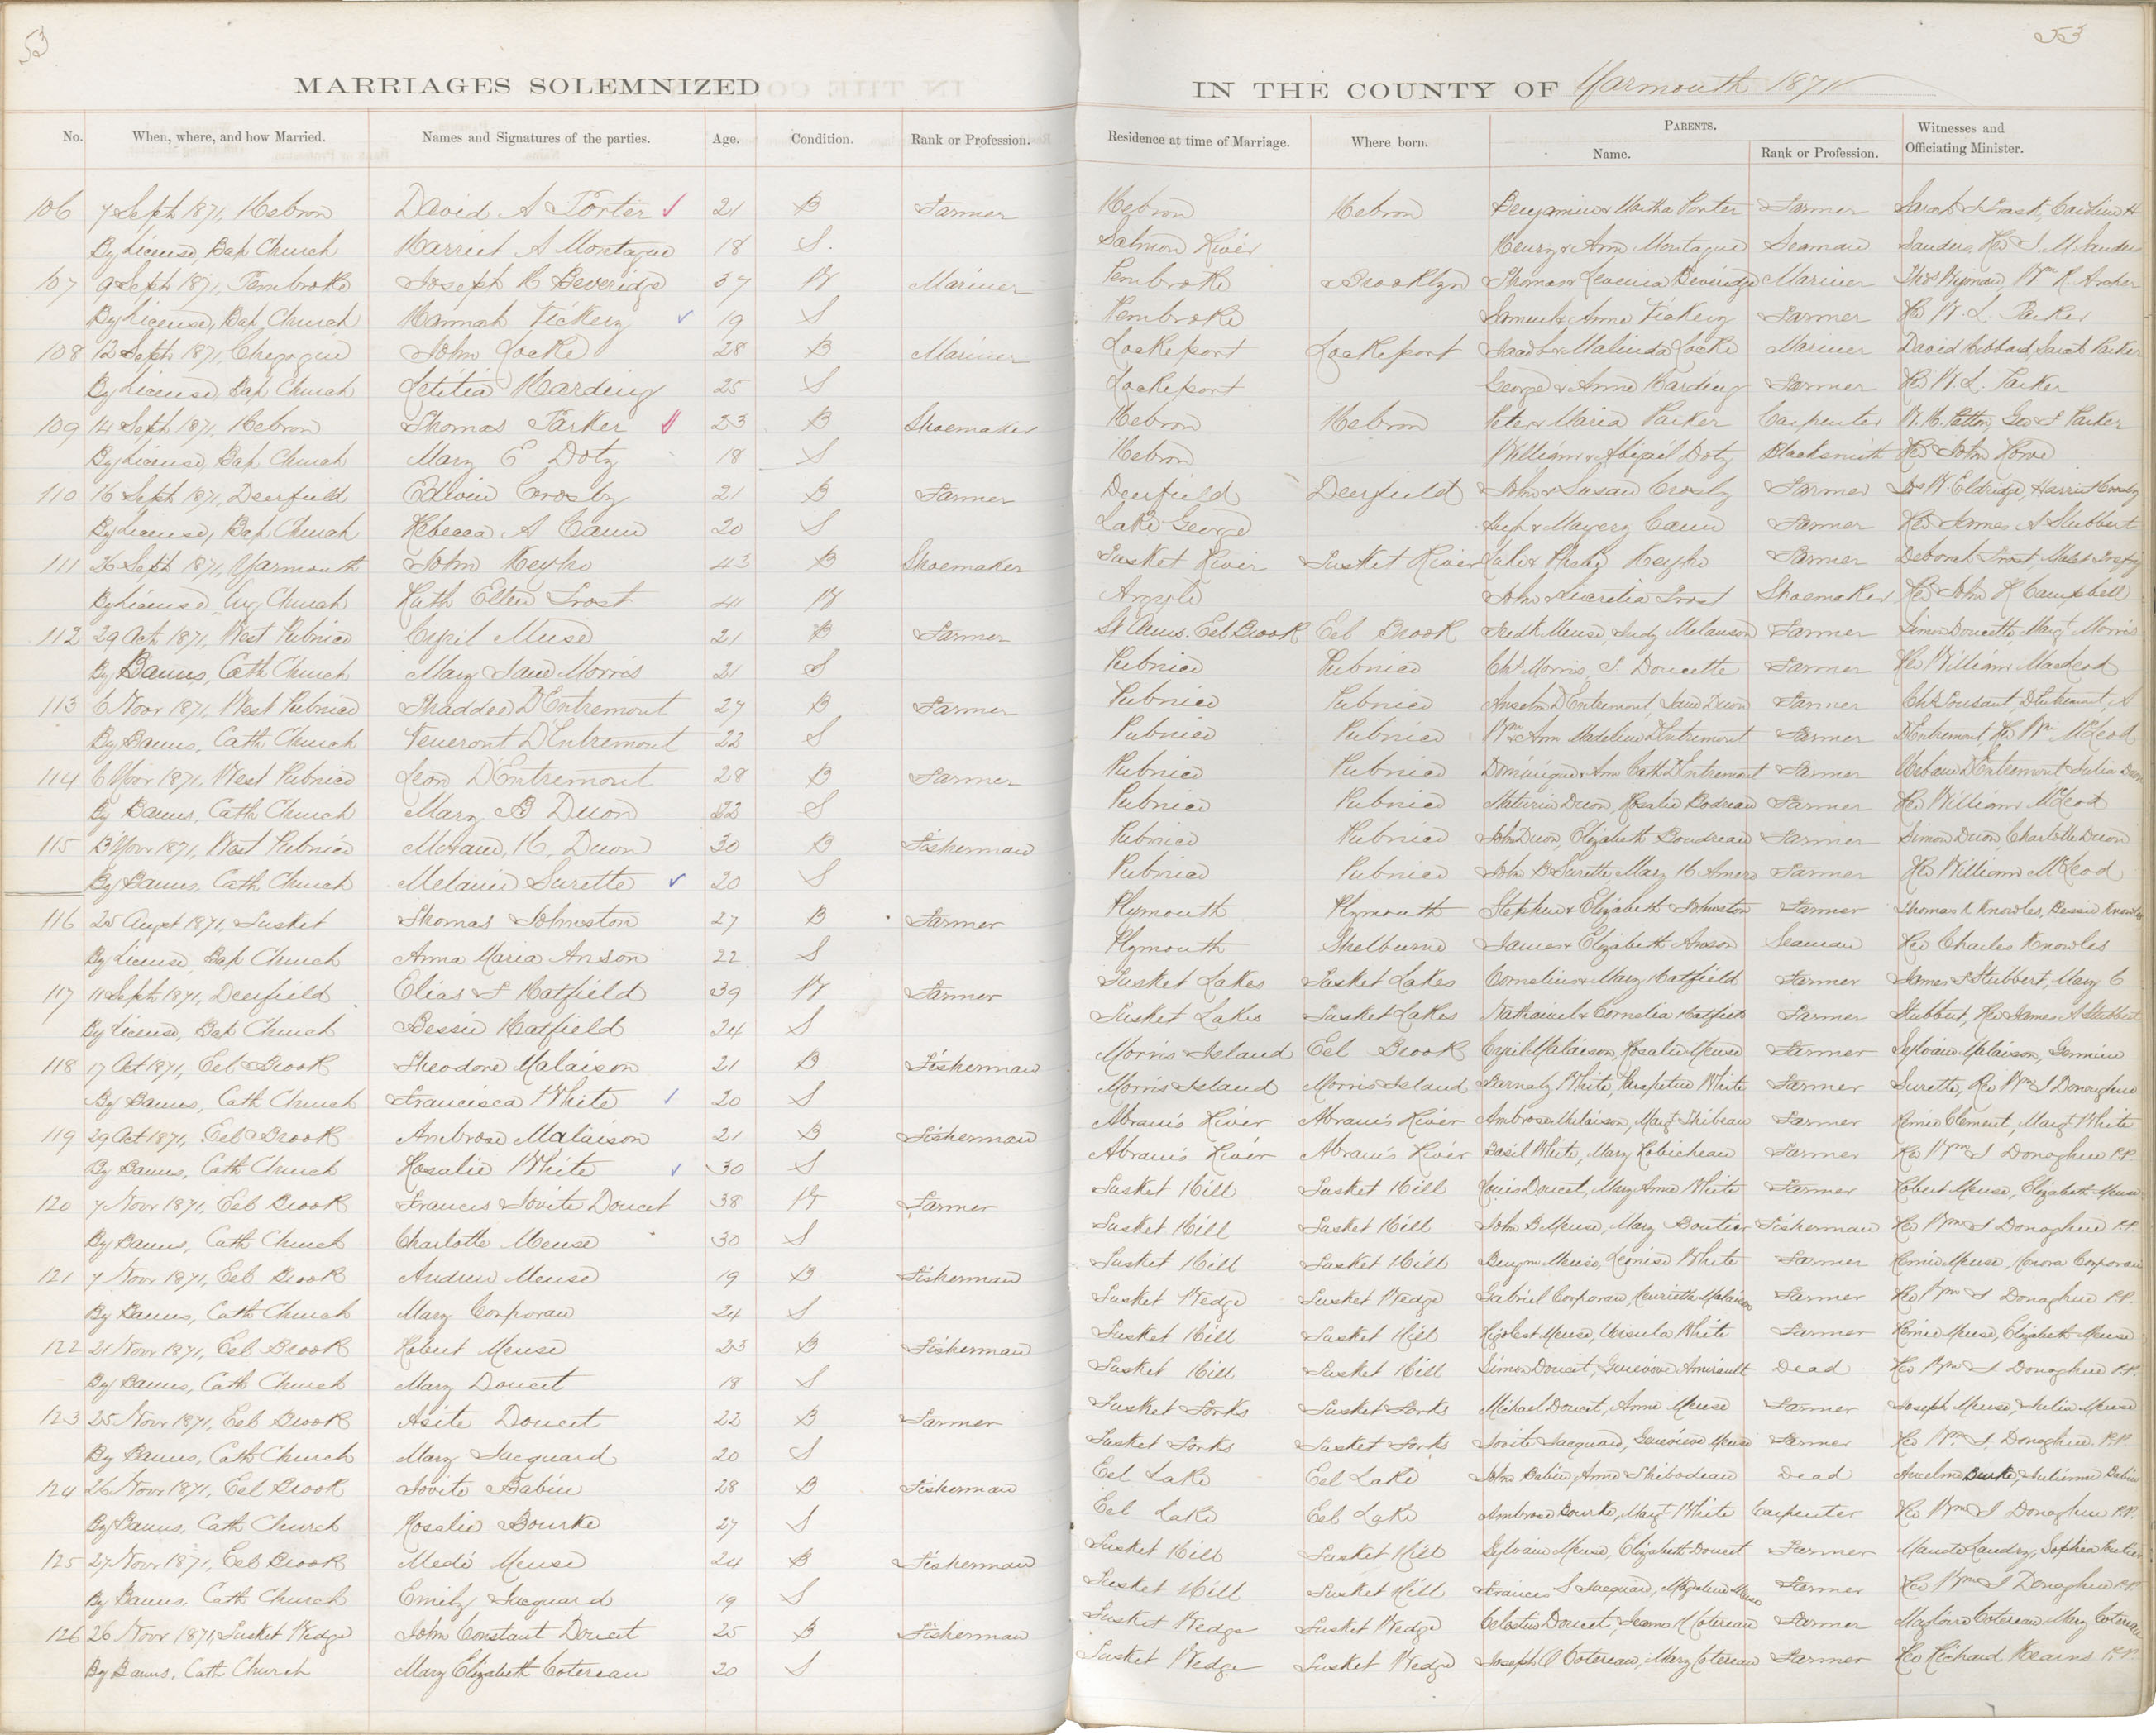 53
53
MARRIAGES SOLEMNIZED
IN THE COUNTY OF Yarmouth 1871
No. When, where, and how Married. Names and Signatures of the parties. Age. Condition. Rank or Profession. Residence at time of Marriage. Where born. PARENTS. Name. Rank or Profession. Witnesses and Officiating Minister.
106 7 Sept 1871, Hebron David A Porter 21 B Farmer Hebron Hebron Benjamin & Martha Porter Farmer Sarah J Trask, Caroline H
By License, Bap Church Harriet A Montague 18 S. Salmon River Henry & Ann Montague Seaman Sanders, Rev J. M. Sanders
107 9 Sept 1871, Pembroke Joseph H Beveridge 37 W Mariner Pembroke Brooklyn Thomas & Levenia Beveridge Mariner Thos Wyman Wm R. Archer
By License, Bap Church Hannah Vickery 19 S Pembroke Samuel & Anna Vickery Farmer Rev W. L. Parker
108 12 Sept 1871, Chegogin John Locke 28 B Mariner Lockeport Lockeport Jacob & Malinda Locke Mariner David Hibbard, Sarah Parker
By License, Bap Church Letitia Harding 25 S Lockeport George & Anna Harding Farmer Rev W. L. Parker
109 14 Sept 1871, Hebron Thomas Parker 23 B Shoemaker Hebron Hebron Peter & Maria Parker Carpenter W. H. Patton, Geo J Parker
By License, Bap Church Mary E Doty 18 S Hebron William & Abigail Doty Blacksmith Rev John Rowe
110 16 Sept 1871, Deerfield Edwin Crosby 21 B Farmer Deerfield Deerfield John & Susan Crosby Farmer W. Eldridge, Harriet Crosby
By License, Bap Church Rebecca A Cann 20 S Lake George Hugh & Mayery Cann Farmer Rev James A Stubbert
111 26 Sept 1871, Yarmouth John Keyho 43 B Shoemaker Tusket River Tusket River & Phebe Keyho Farmer Deborah Frost,
By License, Church Ruth Ellen Frost 41 W Argyle John & Lucretia Frost Shoemaker Rev John R Campbell
112 29 Oct 1871, West Pubnico Cyril Muse 21 B Farmer St Anns. Eel Brook Eel Brook Fredk Meuse, Judy Melanson Farmer Simon Doucette, Margt Morris
By Banns, Cath Church Mary Jane Morris 21 S Pubnico Pubnico Chs Morris, J. Doucette Farmer Rev William MacLeod
113 6 Novr 1871, West Pubnico Thaddee D'Entremont 27 B Farmer Pubnico Pubnico Anselm D'Entremont, Jane Duon Farmer Chs D'Entremont, A
By Banns, Cath Church Veneront D'Entremont 22 S Pubnico Pubnico Wm & Ann Madeline D'Entremont Farmer D'Entremont, Rev Wm McLeod
114 6 Novr 1871, West Pubnico Leon D'Entremont 28 B Farmer Pubnico Pubnico Dominique & Ann Cath D'Entremont Farmer Urbane D'Entremont Julia Duon
By Banns, Cath Church Mary B Duon 22 S Pubnico Pubnico Maturin Duon, Rosalie Bodreau Farmer Rev William McLeod
115 13 Novr 1871, West Pubnico H. Duon 30 B Fisherman Pubnico Pubnico John Duon, Elizabeth Boudreau Farmer Simon Duon, Charlotte Duon
By Banns, Cath Church Melanie Surette 20 S Pubnico Pubnico John B Surette Mary H Amero Farmer Rev William McLeod
116 25 Augst 1871, Tusket Thomas Johnston 27 B Farmer Plymouth Plymouth Stephen & Elizabeth Johnston Farmer Thomas R Knowles, Bessie Knowles
By License, Bap Church Anna Maria Anson 22 S Plymouth Shelburne James & Elizabeth Anson Seaman Rev Charles Knowles
117 11 Sept 1871, Deerfield Elias S Hatfield 39 W Farmer Tusket Lakes Tusket Lakes Cornelius & Mary Hatfield Farmer James S Stubbert, Mary C
By License, Bap Church Bessie Hatfield 24 S Tusket Lakes Tusket Lakes Nathaniel & Cornelia Hatfield Farmer Stubbert, Rev James A Stubbert
118 17 Oct 1871, Eel Brook Theodore Malaison 21 B Fisherman Morris Island Eel Brook Cyril Malaison, Rosalie Meuse Farmer Sylvain Melaison, Germine
By Banns, Cath Church Francisca White 20 S Morris Island Morris Island Barnaby White, Perapetue White Farmer Surette, Rev Wm J Donoughue
119 29 Oct 1871, Eel Brook Ambrose Malaison 21 B Fisherman Abram's River Abram's River Ambrose Melaison, Margt Thibeau Farmer Remie Clement, Margt White
By Banns, Cath Church Rosalie White 30 S Abram's River Abram's River Basil White, Mary Robicheau Farmer Rev Wm J Donoghue P.P.
120 7 Novr 1871, Eel Brook Francis Jovite Doucet 38 W Farmer Tusket Hill Tusket Hill Louis Doucet, Mary Anne White Farmer Robert Meuse, Elizabeth Meuse
By Banns, Cath Church Charlotte Meuse 30 S Tusket Hill Tusket Hill John B Meuse, Mary Boutier Fisherman Rev Wm J Donoghue P.P.
121 7 Novr 1871, Eel Brook Andrew Meuse 19 B Fisherman Tusket Hill Tusket Hill Benjm Meuse, Leonise White Farmer Remie Meuse, Corporau
By Banns, Cath Church Mary Corporau 24 S Tusket Wedge Tusket Wedge Gabriel Corporau, Henrietta Malaison Farmer Rev Wm J Donoghue P.P.
122 21 Novr 1871, Eel Brook Robert Meuse 23 B Fisherman Tusket Hill Tusket Hill Meuse, Ursula White Farmer Remie Meuse, Elizabeth Meuse
By Banns, Cath Church Mary Doucet 18 S Tusket Hill Tusket Hill Simon Doucet, Genevieve Amirault Dead Rev Wm J Donoghue P.P.
123 25 Novr 1871, Eel Brook Asite Doucet 22 B Farmer Tusket Forks Tusket Forks Michael Doucet, Anne Meuse Farmer Joseph Meuse, Julia Meuse
By Banns, Cath Church Mary Jacquard 20 S Tusket Forks Tusket Forks Jovite Jacquard, Genevieve Meuse Farmer Rev Wm J. Donoghue. P.P.
124 26 Novr 1871, Eel Brook Jovite Babin 28 B Fisherman Eel Lake Eel Lake John Babin, Anne Thibodeau Dead Anselme Burke, Julienne Babin
By Banns, Cath Church Rosalie Bourke 27 S Eel Lake Eel Lake Ambrose Bourke, Margt White Carpenter Rev Wm J Donoghue P.P.
125 27 Novr 1871, Eel Brook Medé Meuse 24 B Fisherman Tusket Hill Tusket Hill Sylvain Meuse, Elizabeth Doucet Farmer Landry, Sophia
By Banns, Cath Church Emily Jacquard 19 S Tusket Hill Tusket Hill Francis S Jacquard, Magdeline Muse Farmer Rev Wm J Donoghue P.P.
126 26 Novr 1871, Tusket Wedge John Constant Doucet 25 B Fisherman Tusket Wedge Tusket Wedge Celestin Doucet, Cotereau Farmer Cotereau Mary Cotereau
By Banns, Cath Church Mary Elizabeth Cotereau 20 S Tusket Wedge Tusket Wedge Joseph O Cotereau, Mary Cotereau Farmer Rev Richard Kearns P.P.